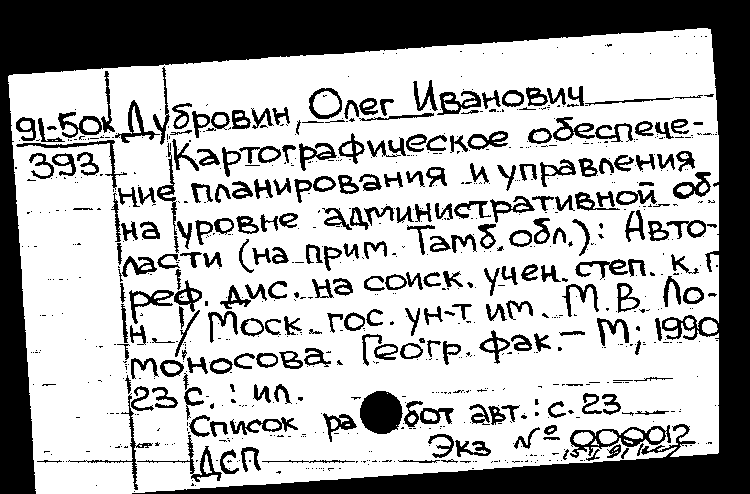 91-50к Дубровин, Олег Иванович
393 Картографическое обеспече-
ние планирования и управления
на уровне административной об-
ласти (на прим. Тамб. обл.): Авто-
реф. дис. на соиск. учен. степ. к. г.
н / Моск. гос. ун-т им. М.В. Ло-
моносова. Геогр. фак. – М; 1990
23 с. : ил.
Список работ авт.: с. 23
ДСП Экз № 000012